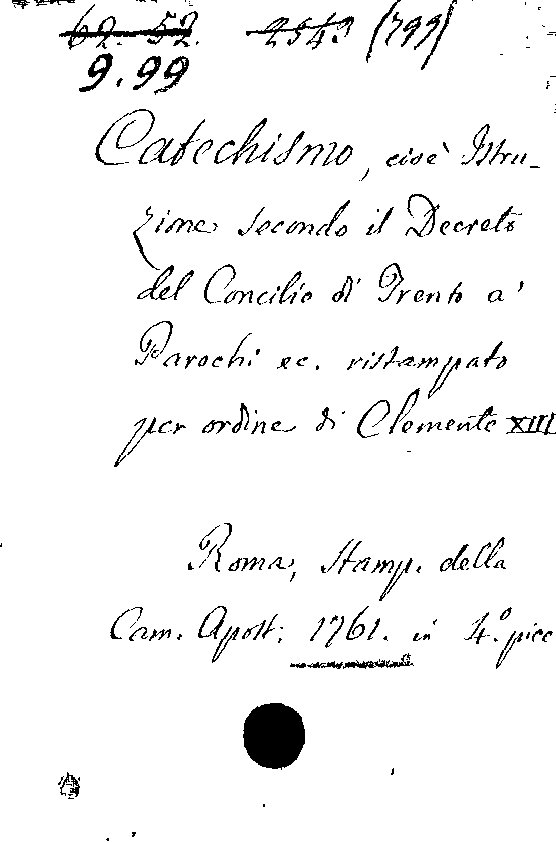 62. 52. 2543 (799)
9.99
Catechismo, cioè Istru-
zione secondo il Decreto
del Concilio di Trento a'
Parochi ec. ristampato
per ordine di Clemente XIII
Roma, Stamp. della
Cam. Apost: 1761. in 4.º picc